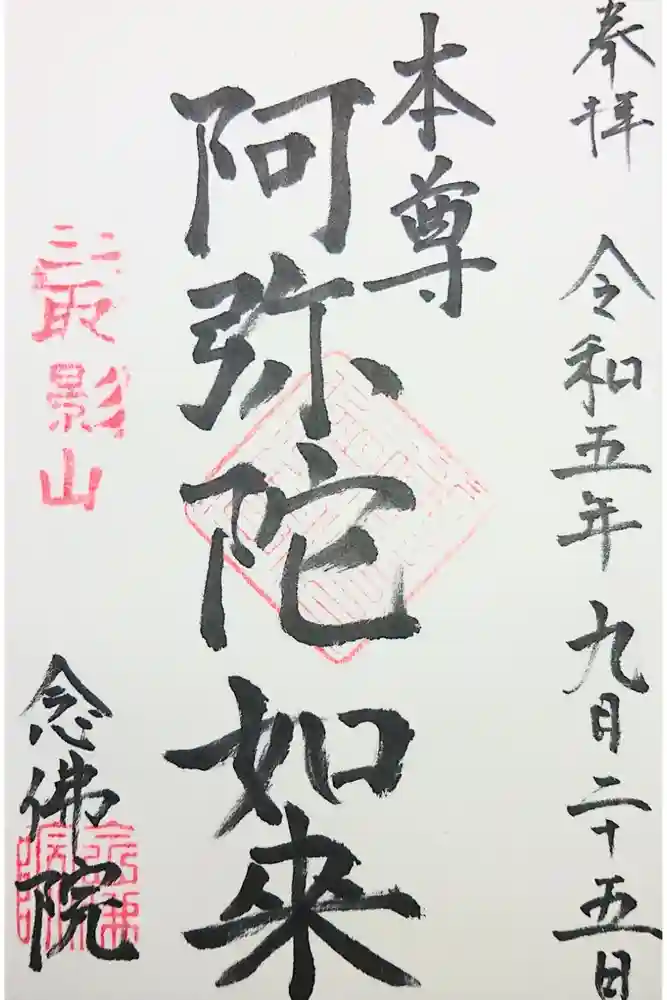 奉拝 令和五年九月二十五日
本尊
阿弥陀如來
影山
念佛院